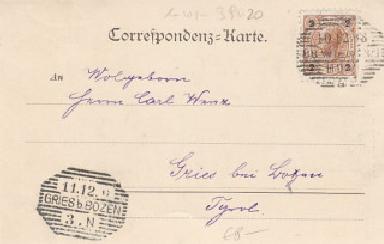 3820
Correspondenz-Karte.
3 3
An Wolgeborn
Herrn Carl
Gries bei Bozen
Tyrol.
11.12.
GRIES b. BOZEN
3. N
£8-